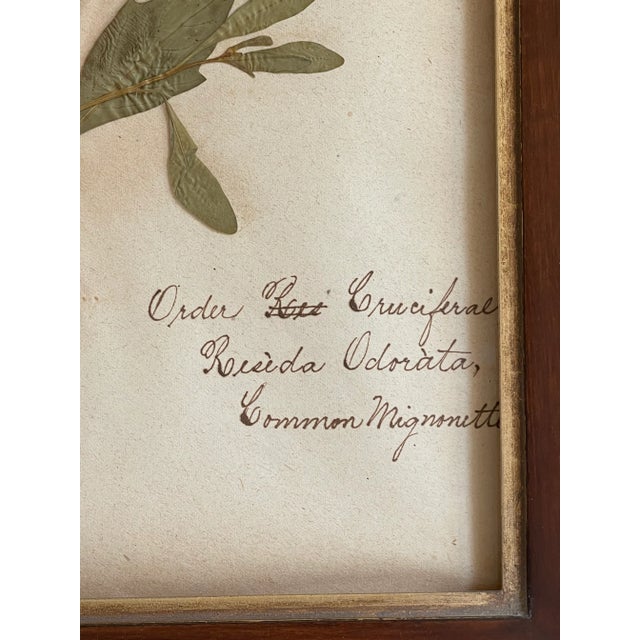 Order Rose Cruciferae
Resèda Odoràta,
Common Mignonette